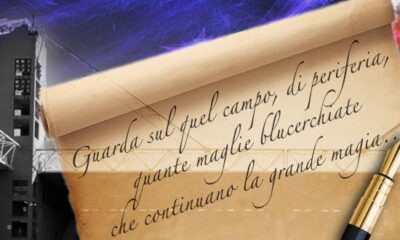 Guarda sul quel campo, di periferia,
quante maglie blucerchiate
che continuano la grande magia..